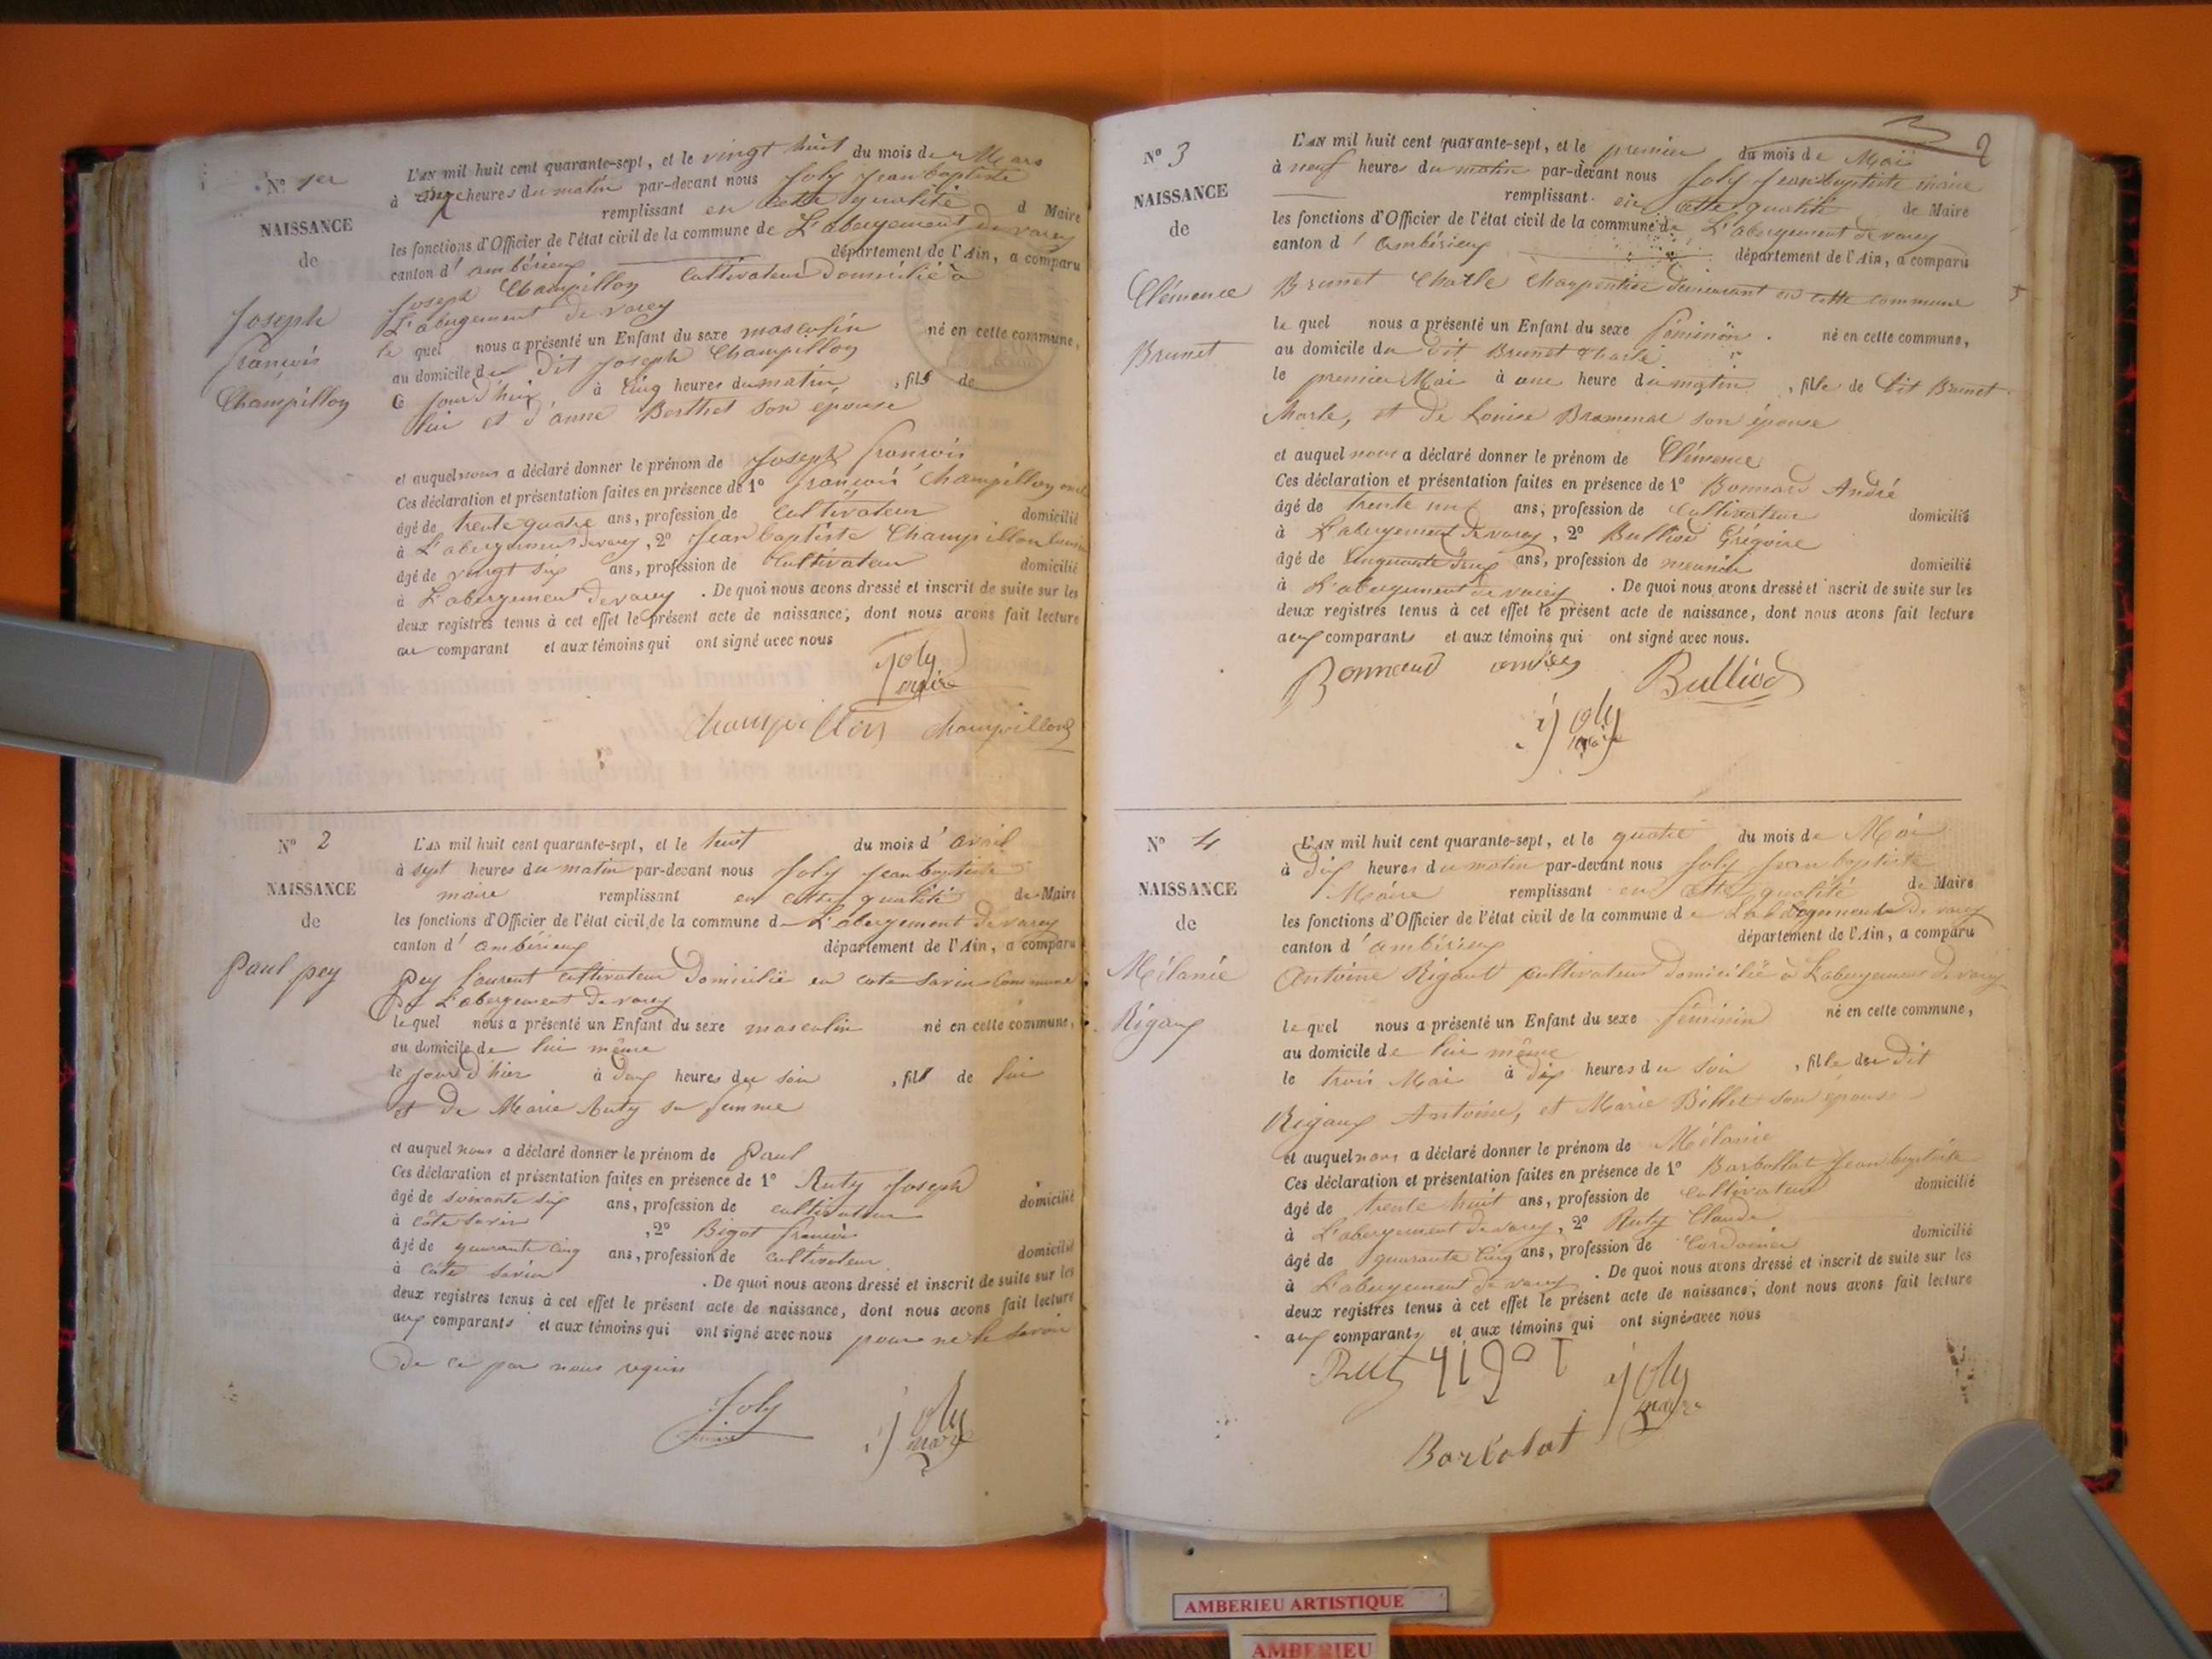 N° 1er
NAISSANCE
de
Joseph
françois
Champillon
L'AN mil huit cent quarante-sept, et le vingt huit du mois de Mars
à onze heures du matin par-devant nous Joly Jean baptiste
remplissant en cette qualité d Maire
les fonctions d'Officier de l'état civil de la commune de L'abergement de varey
canton d'ambérieux département de l'Ain, a comparu
Joseph Champillon Cultivateur domicilié à
L'abergement de varey
le quel nous a présenté un Enfant du sexe masculin né en cette commune,
au domicile du dit Joseph Champillon
Ce jourd'hui à Cinq heures du matin, fils de
lui et d'anne Berthet son épouse
et auquel nous a déclaré donner le prénom de Joseph françois
Ces déclaration et présentation faites en présence de 1° françois Champillon
âgé de trente quatre ans, profession de cultivateur domicilié
à L'abergement de varey, 2° Jean baptiste Champillon
âgé de vingt six ans, profession de Cultivateur domicilié
à L'abergement de varey. De quoi nous avons dressé et inscrit de suite sur les
deux registres tenus à cet effet le présent acte de naissance, dont nous avons fait lecture
au comparant et aux témoins qui ont signé avec nous
Joly
maire
Champillon Champillon
N° 2
NAISSANCE
de
Paul pey
L'AN mil huit cent quarante-sept, et le huit du mois d'avril
à sept heures du matin par-devant nous Joly Jean baptiste
maire remplissant en cette qualité de Maire
les fonctions d'Officier de l'état civil de la commune d L'abergement de varey
canton d'ambérieux département de l'Ain, a comparu
pey laurent cultivateur Domicilié en cote savin Commune
de L'abergement de varey
le quel nous a présenté un Enfant du sexe masculin né en cette commune,
au domicile de lui même
le jour d'hier à deux heures du soir, fils de lui
et de Marie Ruty sa femme
et auquel nous a déclaré donner le prénom de Paul
Ces déclaration et présentation faites en présence de 1° Ruty Joseph
âgé de soixante six ans, profession de cultivateur domicilié
à côte savin, 2° Bigot françois
âgé de quarante cinq ans, profession de cultivateur domicilié
à côte savin. De quoi nous avons dressé et inscrit de suite sur les
deux registres tenus à cet effet le présent acte de naissance, dont nous avons fait lecture
aux comparants et aux témoins qui ont signé avec nous pour ne le savoir
de ce par nous requis
Joly
maire
joly
maire
2
N° 3
NAISSANCE
de
Clémence
Brunet
L'AN mil huit cent quarante-sept, et le premier du mois de Mai
à neuf heures du matin par-devant nous Joly Jean baptiste maire
remplissant en cette qualité de Maire
les fonctions d'Officier de l'état civil de la commune de L'abergement de varey
canton d'ambérieux département de l'Ain, a comparu
Brunet Charle Charpentier demeurant en cette commune
le quel nous a présenté un Enfant du sexe féminin. né en cette commune,
au domicile du dit Brunet Charle
le premier Mai à une heure du matin, fille de dit Brunet
Charle, et de Louise Bramenal son épouse
et auquel nous a déclaré donner le prénom de Clémence
Ces déclaration et présentation faites en présence de 1° Bonnard André
âgé de trente un ans, profession de Cultivateur domicilié
à L'abergement de varey, 2° Bulliod Grégoire
âgé de Cinquante deux ans, profession de meunier domicilié
à L'abergement de varey. De quoi nous avons dressé et inscrit de suite sur les
deux registres tenus à cet effet le présent acte de naissance, dont nous avons fait lecture
aux comparants et aux témoins qui ont signé avec nous.
Bonnard andré Bulliod
joly
maire
N° 4
NAISSANCE
de
Mélanie
Rigaux
L'AN mil huit cent quarante-sept, et le quatre du mois de Mai
à dix heures du matin par-devant nous Joly Jean baptiste
Maire remplissant en cette qualité de Maire
les fonctions d'Officier de l'état civil de la commune de L'abergement de varey
canton d'ambérieux département de l'Ain, a comparu
Antoine Rigaut cultivateur domicilié à L'abergement de varey
le quel nous a présenté un Enfant du sexe féminin né en cette commune,
au domicile de lui même
le trois Mai à dix heures du soir, fille du dit
Rigaux Antoine, et Marie Billet son épouse
et auquel nous a déclaré donner le prénom de Mélanie
Ces déclaration et présentation faites en présence de 1° Barbollat Jean baptiste
âgé de trente huit ans, profession de cultivateur domicilié
à L'abergement de varey, 2° Ruty Claude
âgé de quarante Cinq ans, profession de Cordonier domicilié
à L'abergement de varey. De quoi nous avons dressé et inscrit de suite sur les
deux registres tenus à cet effet le présent acte de naissance, dont nous avons fait lecture
aux comparants et aux témoins qui ont signé avec nous
Ruty rigot joly
maire
Barbolat
AMBERIEU ARTISTIQUE
AMBERIEU